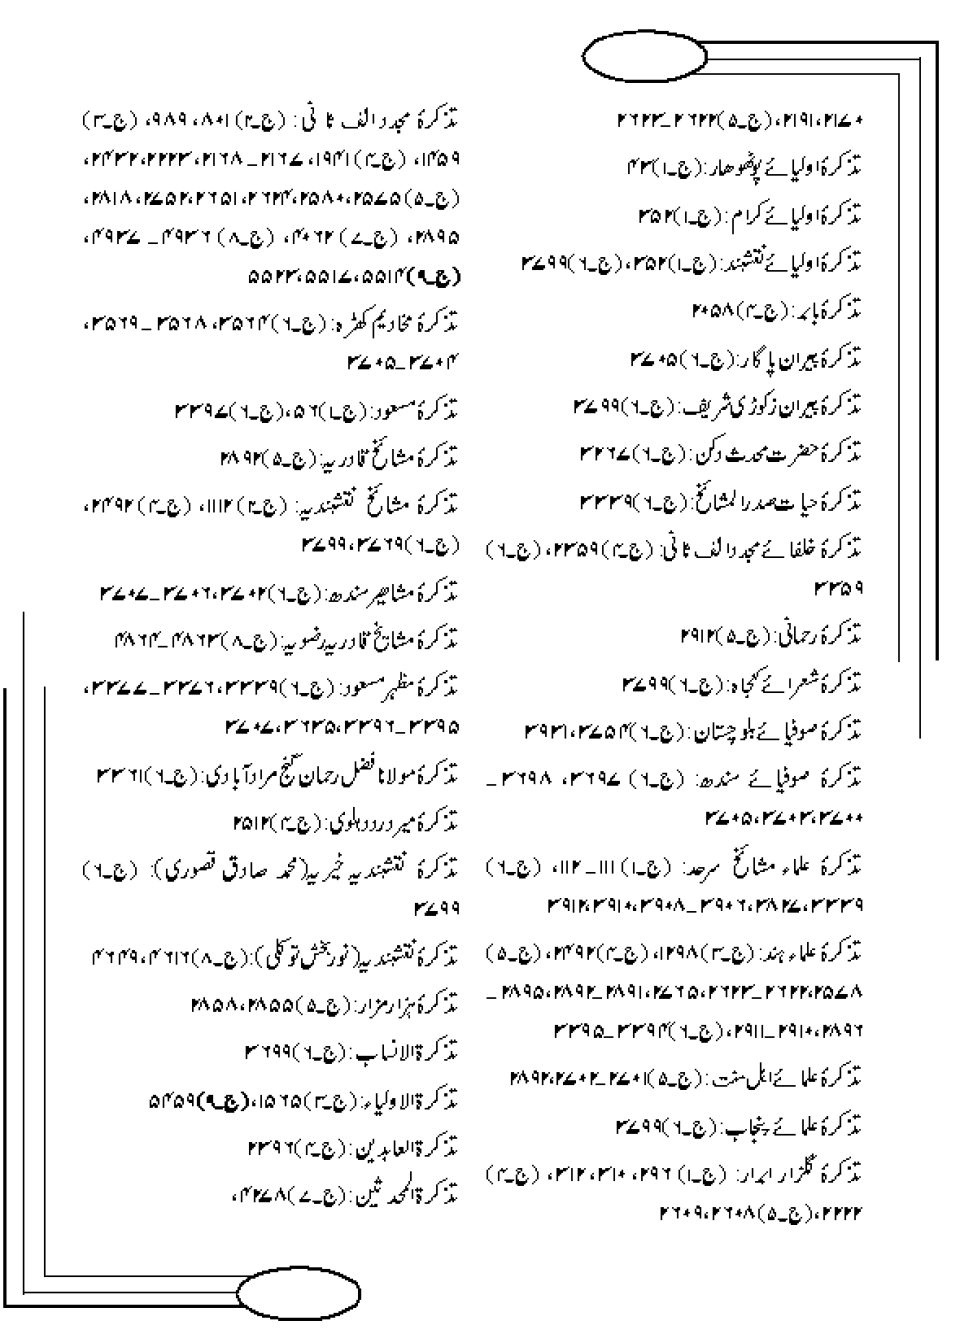 ۲۱۷۰، ۲۱۹۱، (ج۔۵)۲۶۲۲۔۲۶۲۳
تذکرۂ اولیائے پوٹھوھار: (ج۔۱)۴۳
تذکرۂ اولیائے کرام: (ج۔۱)۳۵۲
تذکرۂ اولیائے نقشبند: (ج۔۱)۳۵۲، (ج۔۶)۳۷۹۹
تذکرۂ بابر: (ج۔۴)۲۰۵۸
تذکرۂ پیران پاگار: (ج۔۶)۳۷۰۵
تذکرۂ پیران زکوڑی شریف: (ج۔۶)۳۷۹۹
تذکرۂ حضرت محدث دکن: (ج۔۶)۳۲۶۷
تذکرۂ حیات صدرالمشائخ: (ج۔۶)۳۳۳۹
تذکرۂ خلفائے مجدد الف ثانی: (ج۔۴)۲۳۵۹، (ج۔۶)
۳۳۵۹
تذکرۂ رحمانی: (ج۔۵)۲۹۱۲
تذکرۂ شعرائے کنجاہ: (ج۔۶)۳۷۹۹
تذکرۂ صوفیائے بلوچستان: (ج۔۶)۳۷۵۴، ۳۹۳۱
تذکرۂ صوفیائے سندھ: (ج۔۶) ۳۶۹۷، ۳۶۹۸۔
۳۷۰۰، ۳۷۰۳، ۳۷۰۵
تذکرۂ علماء مشائخ سرحد: (ج۔۱) ۱۱۱۔۱۱۲، (ج۔۶)
۳۳۳۹، ۳۸۲۷، ۳۹۰۶۔۳۹۰۸، ۳۹۱۰، ۳۹۱۲
تذکرۂ علماء ہند: (ج۔۳)۱۲۹۸، (ج۔۴)۲۴۹۲، (ج۔۵)
۲۵۷۸، ۲۶۲۲۔۲۶۲۳، ۲۷۶۵، ۲۸۹۱۔۲۸۹۲، ۲۸۹۵۔
۲۸۹۶، ۲۹۱۰۔۲۹۱۱، (ج۔۶)۳۳۹۴۔۳۳۹۵
تذکرۂ علمائے اہل سنت: (ج۔۵)۲۷۰۱۔۲۷۰۲، ۲۸۹۲
تذکرۂ علمائے پنجاب: (ج۔۶)۳۷۹۹
تذکرۂ گلزار ابرار: (ج۔۱) ۲۹۶، ۳۱۰، ۳۱۲، (ج۔۴)
۲۲۲۲، (ج۔۵)۲۶۰۸، ۲۶۰۹
تذکرۂ مجدد الف ثانی: (ج۔۲) ۸۰۱، ۹۸۹، (ج۔۳)
۱۴۵۹، (ج۔۴) ۱۹۴۱، ۲۱۶۷۔۲۱۶۸، ۲۲۲۳، ۲۴۳۲،
(ج۔۵)۲۵۷۵، ۲۵۸۰، ۲۶۲۴، ۲۶۵۱، ۲۷۵۲، ۲۸۱۸،
۲۸۹۵، (ج۔۷) ۴۰۶۲، (ج۔۸) ۴۹۳۶۔۴۹۳۷،
(ج۔۹)۵۵۱۴، ۵۵۱۷، ۵۵۲۳
تذکرۂ مخادیم کھڑہ: (ج۔۶)۳۵۶۴، ۳۵۶۸۔۳۵۶۹،
۳۷۰۴۔۳۷۰۵
تذکرۂ مسعود: (ج۔۱)۵۶، (ج۔۶)۳۳۹۷
تذکرۂ مشائخ قادریہ: (ج۔۵)۲۸۹۲
تذکرۂ مشائخ نقشبندیہ: (ج۔۲)۱۱۱۲، (ج۔۴)۲۴۹۲،
(ج۔۶)۳۷۶۹، ۳۷۹۹
تذکرۂ مشاہیر سندھ: (ج۔۶)۳۷۰۲، ۳۷۰۶۔۳۷۰۷
تذکرۂ مشایخ قادریہ رضویہ: (ج۔۸)۴۸۶۳۔۴۸۶۴
تذکرۂ مظہر مسعود: (ج۔۶)۳۳۳۹، ۳۳۷۶۔۳۳۷۷،
۳۳۹۵۔۳۳۹۶، ۳۶۳۵، ۳۷۰۷
تذکرۂ مولانا فضل رحمان گنج مرادآبادی: (ج۔۶)۳۳۶۱
تذکرۂ میر درد دہلوی: (ج۔۴)۲۵۱۲
تذکرۂ نقشبندیہ خیریہ(محمد صادق قصوری): (ج۔۶)
۳۷۹۹
تذکرۂ نقشبندیہ(نور بخش توکلی): (ج۔۸)۴۶۱۶، ۴۶۴۹
تذکرۂ ہزار مزار: (ج۔۵)۲۸۵۵، ۲۸۵۸
تذکرۃ الانساب: (ج۔۶)۳۶۹۹
تذکرۃ الاولیاء: (ج۔۳)۱۵۶۵، (ج۔۹)۵۴۵۹
تذکرۃ العابدین: (ج۔۴)۲۳۹۶
تذکرۃ المحدثین: (ج۔۷)۴۲۷۸،